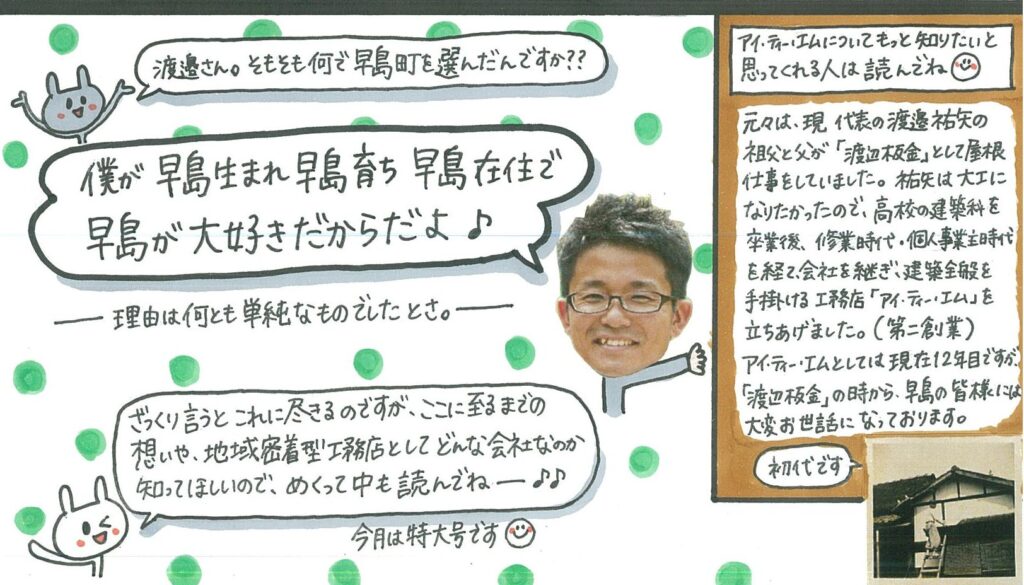 渡邉さん。そもそも何で早島町を選んだんですか??
僕が早島生まれ早島育ち 早島在住で
早島が大好きだからだよ♪
理由は何とも単純なものでしたとさ。
ざっくり言うとこれに尽きるのですが、ここに至るまでの
想いや、地域密着型工務店としてどんな会社なのか
知ってほしいので、めくって中も読んでねー♪♪
今月は特大号です
アイ・ティー・エムについてもっと知りたいと
思ってくれる人は読んでね
元々は、現代表の渡邉祐矢の
祖父と父が「渡辺板金」として屋根
仕事をしていました。祐矢は大工に
なりたかったので、高校の建築科を
卒業後、修業時代・個人事業主時代
を経て会社を継ぎ、建築全般を
手掛ける工務店「アイ・ティー・エム」を
立ちあげました。(第二創業)
アイ・ティー・エムとしては現在12年目ですが、
「渡辺板金」の時から、早島の皆様には
大変お世話になっております。
初代です